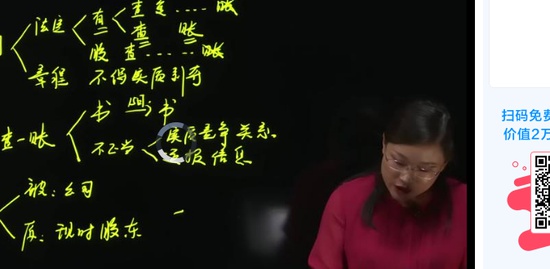 法定
有 查 …… 账
查 账
股 查 …… 账
章程 不得实质剥夺
书 书
查一账
不正当 实质竞争关系
信息
被：公司
原：现时股东
扫码免费
价值2万